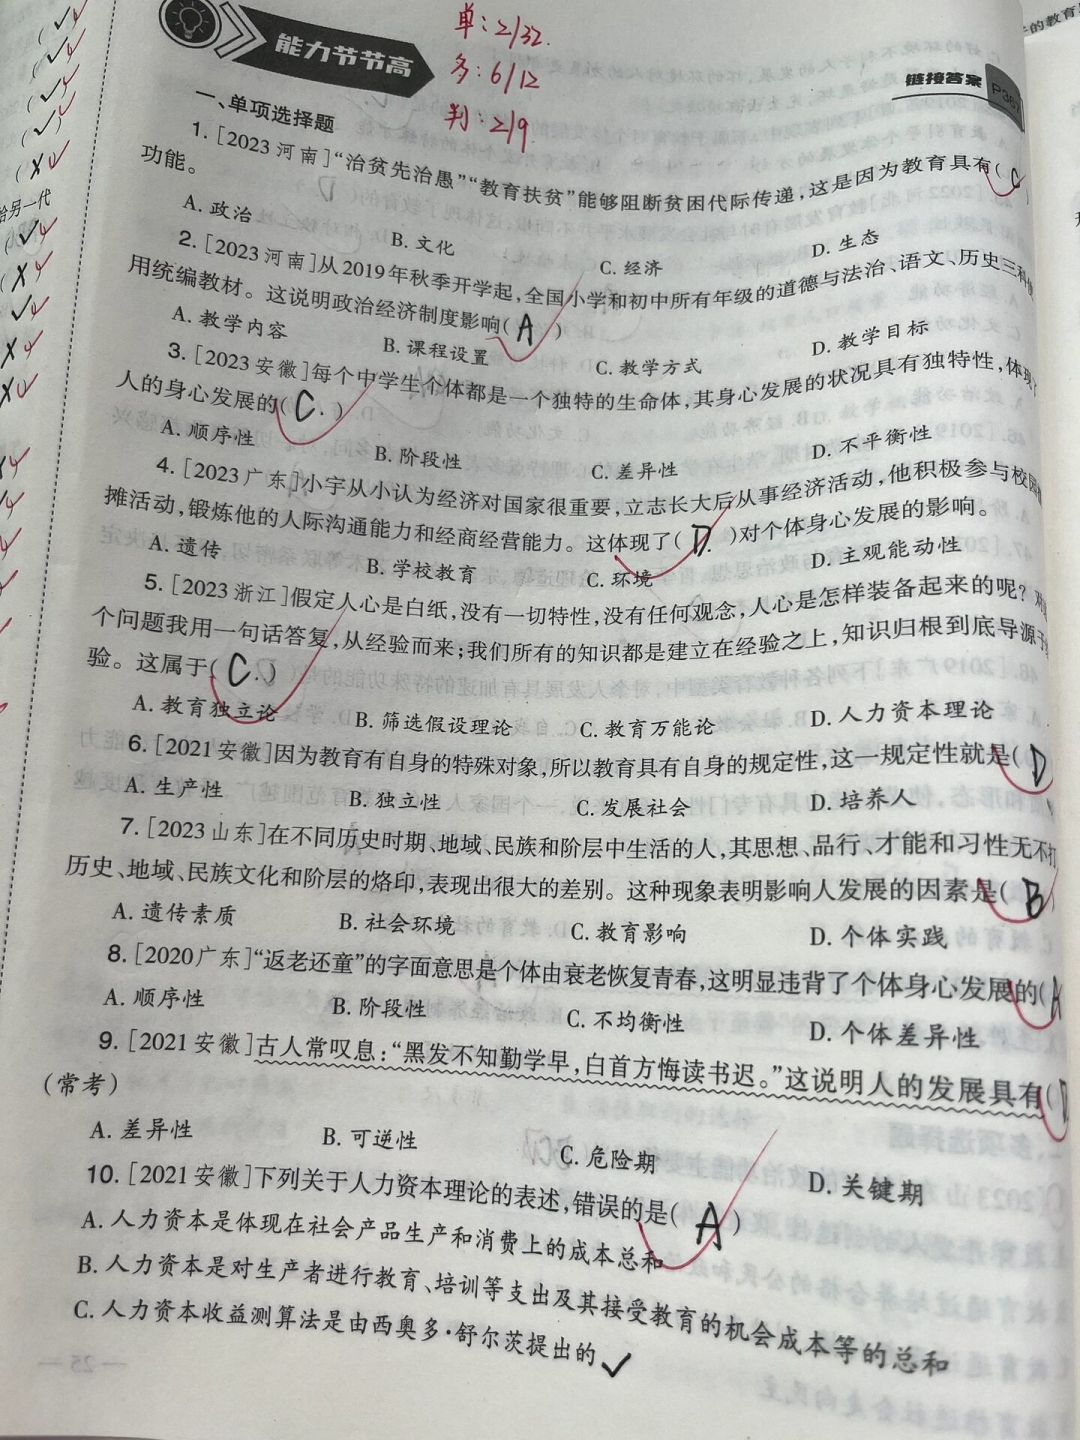 单:2/32.
多:6/12
判:2/9
能力节节高
链接答案
一、单项选择题
1. [2023河南]“治贫先治愚”“教育扶贫”能够阻断贫困代际传递,这是因为教育具有( C
功能。
A. 政治 B. 文化 C. 经济 D. 生态
2. [2023河南]从2019年秋季开学起,全国小学和初中所有年级的道德与法治、语文、历史三科
用统编教材。这说明政治经济制度影响( A )
A. 教学内容 B. 课程设置 C. 教学方式 D. 教学目标
3. [2023安徽]每个中学生个体都是一个独特的生命体,其身心发展的状况具有独特性,体现
人的身心发展的( C. )
A. 顺序性 B. 阶段性 C. 差异性 D. 不平衡性
4. [2023广东]小宇从小认为经济对国家很重要,立志长大后从事经济活动,他积极参与校园
摊活动,锻炼他的人际沟通能力和经商经营能力。这体现了( D. )对个体身心发展的影响。
A. 遗传 B. 学校教育 C. 环境 D. 主观能动性
5. [2023浙江]假定人心是白纸,没有一切特性,没有任何观念,人心是怎样装备起来的呢?
个问题我用一句话答复,从经验而来;我们所有的知识都是建立在经验之上,知识归根到底导源于
验。这属于( C. )
A. 教育独立论 B. 筛选假设理论 C. 教育万能论 D. 人力资本理论
6. [2021安徽]因为教育有自身的特殊对象,所以教育具有自身的规定性,这一规定性就是( D
A. 生产性 B. 独立性 C. 发展社会 D. 培养人
7. [2023山东]在不同历史时期、地域、民族和阶层中生活的人,其思想、品行、才能和习性无不打
历史、地域、民族文化和阶层的烙印,表现出很大的差别。这种现象表明影响人发展的因素是( B
A. 遗传素质 B. 社会环境 C. 教育影响 D. 个体实践
8. [2020广东]“返老还童”的字面意思是个体由衰老恢复青春,这明显违背了个体身心发展的( A
A. 顺序性 B. 阶段性 C. 不均衡性 D. 个体差异性
9. [2021安徽]古人常叹息:“黑发不知勤学早,白首方悔读书迟。”这说明人的发展具有( D
(常考)
A. 差异性 B. 可逆性 C. 危险期 D. 关键期
10. [2021安徽]下列关于人力资本理论的表述,错误的是( A )
A. 人力资本是体现在社会产品生产和消费上的成本总和
B. 人力资本是对生产者进行教育、培训等支出及其接受教育的机会成本等的总和
C. 人力资本收益测算法是由西奥多·舒尔茨提出的
给另一代